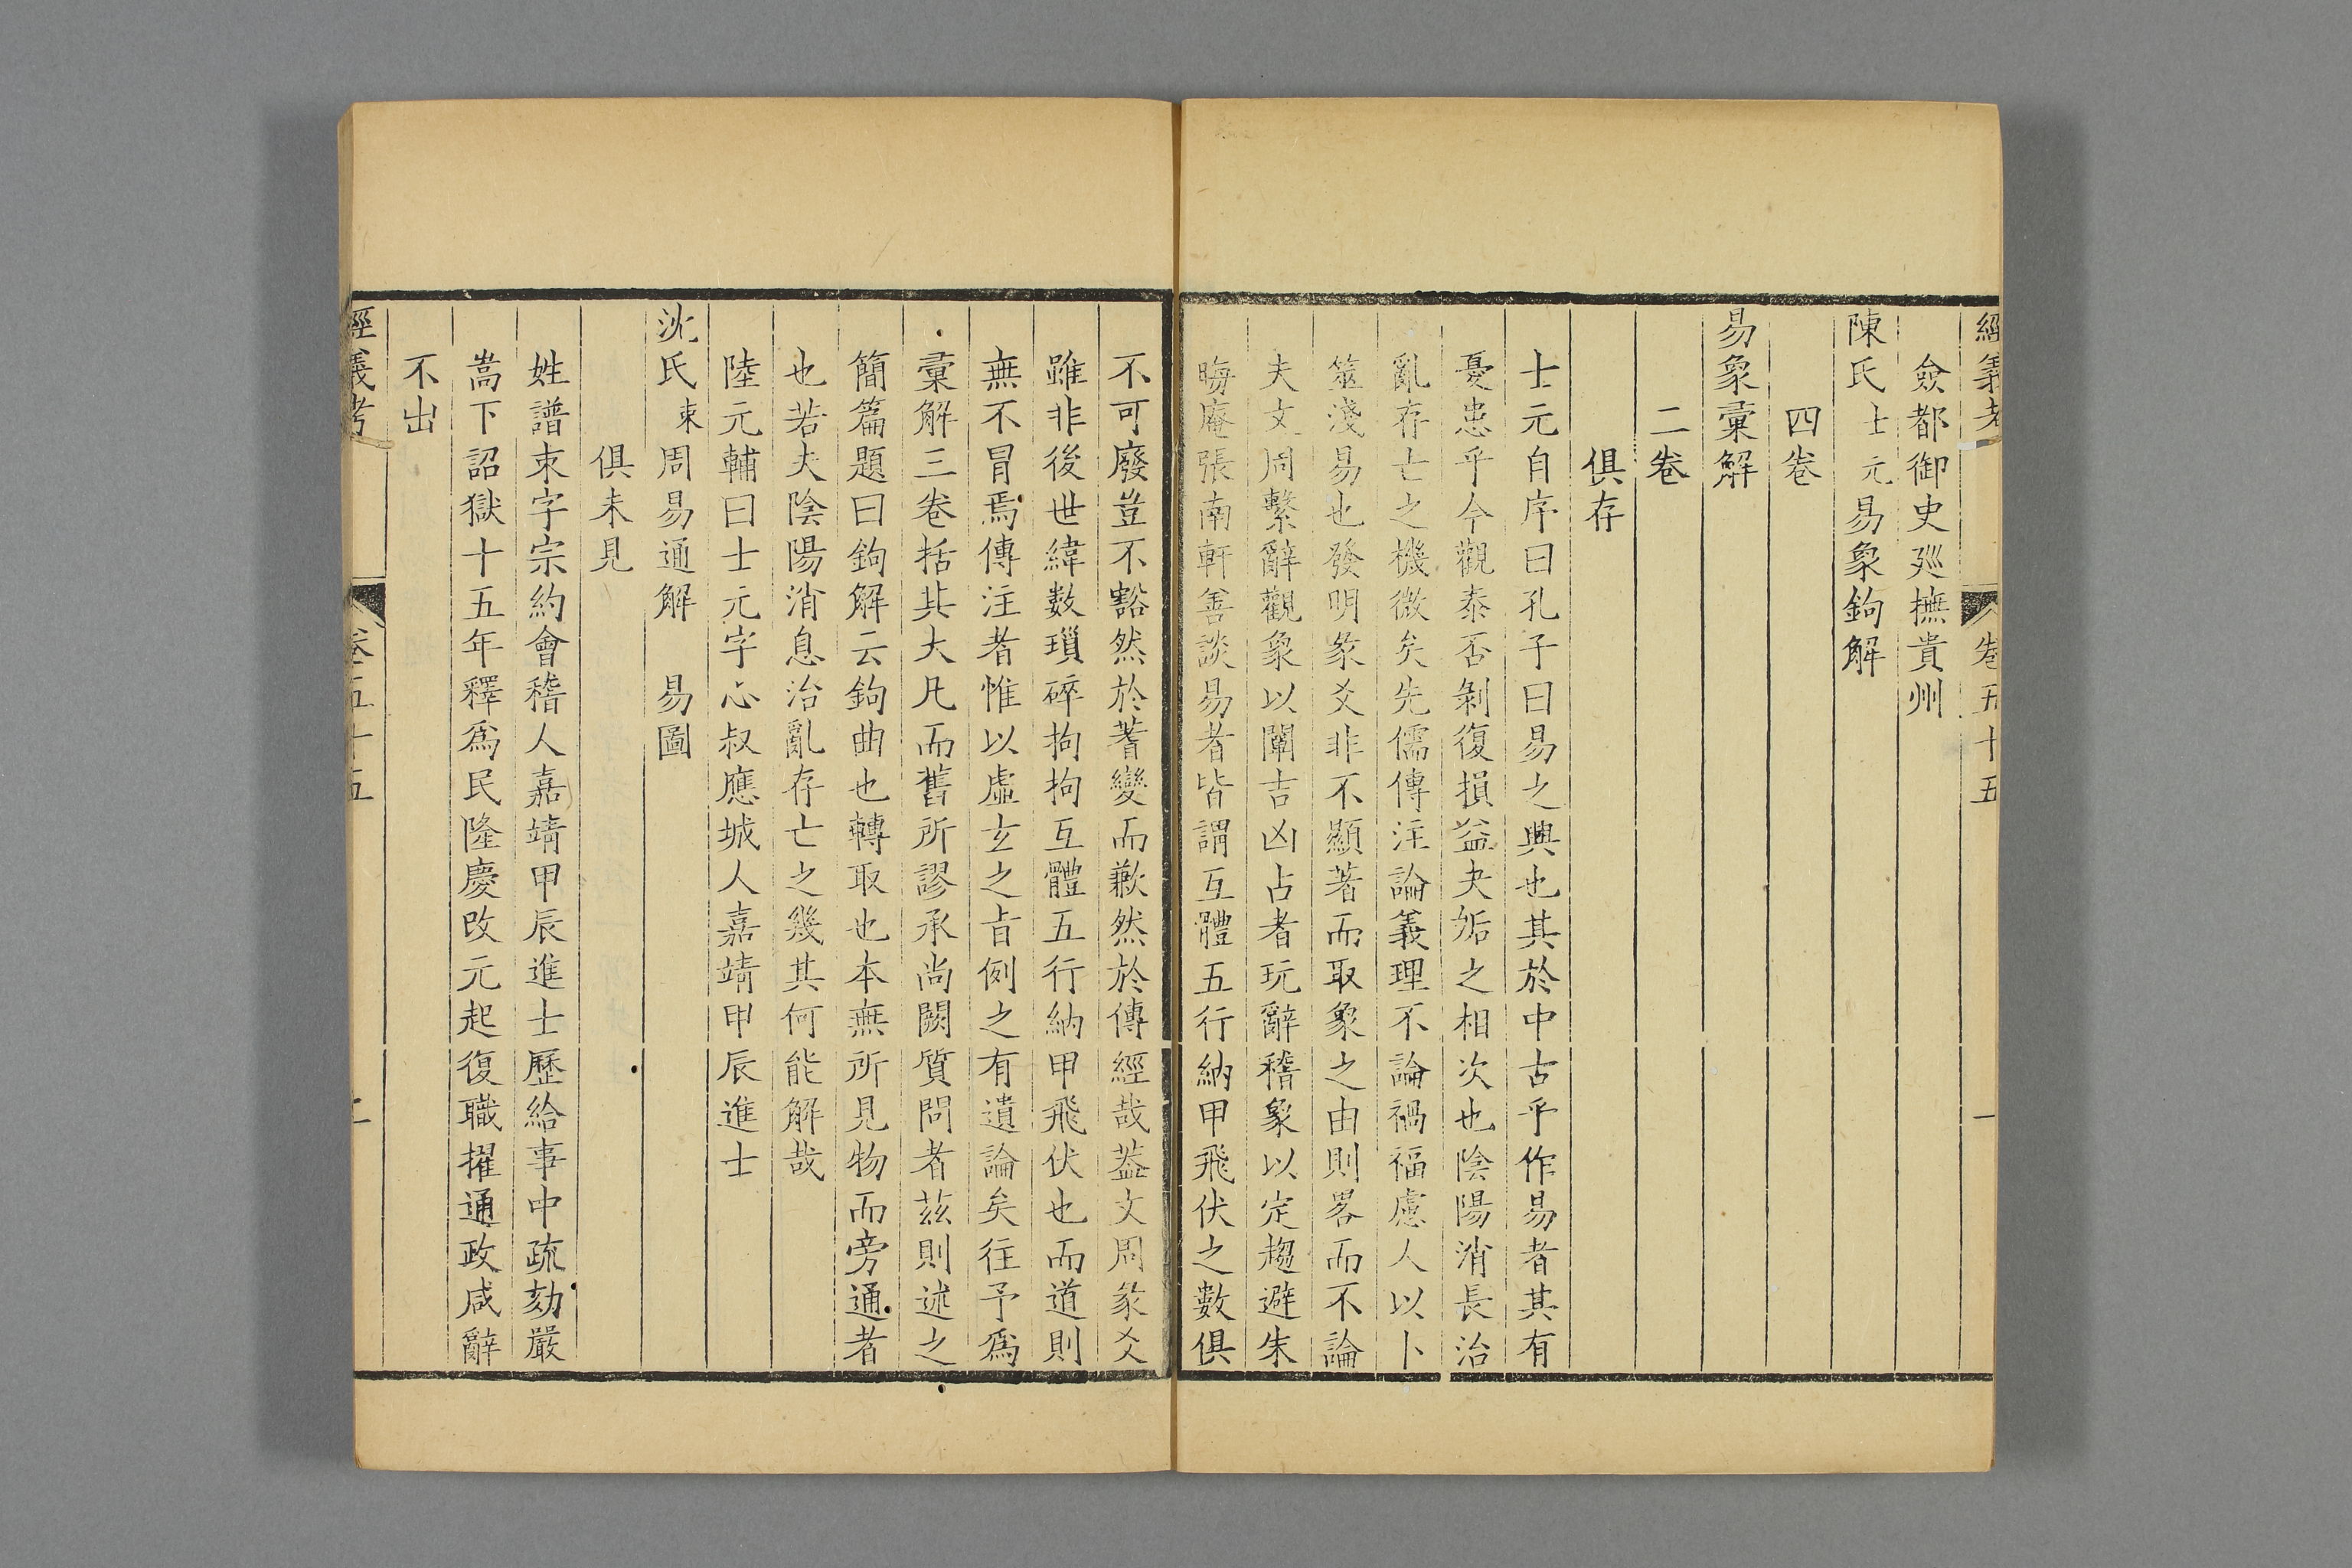 經義考 卷五十五 一
僉都御史廵撫貴州
陳氏士元易象鉤解
四卷
易象彚解
二卷
俱存
士元自序曰孔子曰易之興也其於中古乎作易者其有
憂患乎今觀泰否剝復損益夬姤之相次也陰陽消長治
亂存亡之機微矣先儒傳注論義理不論禍福慮人以卜
筮淺易也發明彖爻非不顯著而取象之由則畧而不論
夫文周繫辭觀象以闡吉凶占者玩辭稽象以定趨避朱
晦庵張南軒善談易者皆謂互體五行納甲飛伏之數俱
不可廢豈不豁然於蓍變而歉然於傳經哉葢文周彖爻
雖非後世緯數瑣碎拘拘互體五行納甲飛伏也而道則
無不冒焉傳注者惟以虛玄之㫖例之有遺論矣往予爲
彚解三卷括其大凡而舊所謬承尚闕質問者茲則述之
簡篇題曰鉤解云鉤曲也轉取也本無所見物而旁通者
也若夫陰陽消息治亂存亡之幾其何能解哉
陸元輔曰士元字心叔應城人嘉靖甲辰進士
沈氏束周易通解 易圖
俱未見
姓譜束字宗約會稽人嘉靖甲辰進士歷給事中疏劾嚴
嵩下詔獄十五年釋爲民隆慶改元起復職擢通政咸辭
不出
經義考 卷五十五